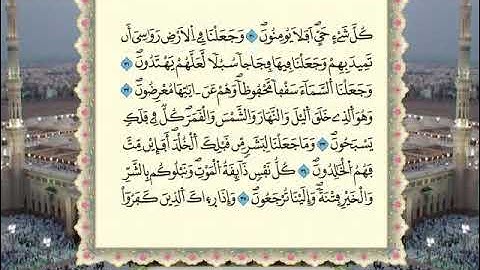 كُلَّ شَےْءٍ حَيٍّ اَفَلَا يُومِنُونَ وَجَعَلْنَا فِے اِ۬لْأَرْضِ رَوَٰسِيَ أَن
تَمِيدَ بِهِمْ وَجَعَلْنَا فِيهَا فِجَاجاً سُبُلًا لَّعَلَّهُمْ يَهْتَدُونَ
وَجَعَلْنَا اَ۬لسَّمَآءَ سَقْفاً مَّحْفُوظاً وَهُمْ عَنَ اٰيَٰتِهَا مُعْرِضُونَ
وَهُوَ اَ۬لذِے خَلَقَ اَ۬ليْلَ وَالنَّهَارَ وَالشَّمْسَ وَالْقَمَرَ كُلٌّ فِے فَلَكٍ
يَسْبَحُونَ وَمَا جَعَلْنَا لِبَشَرٍ مِّن قَبْلِكَ اَ۬لْخُلْدَ أَفَإِيْن مِّتَّ
فَهُمُ اُ۬لْخَٰلِدُونَ كُلُّ نَفْسٍ ذَآئِقَةُ اُ۬لْمَوْتِ وَنَبْلُوكُم بِالشَّرِّ
وَالْخَيْرِ فِتْنَةً وَإِلَيْنَا تُرْجَعُونَ وَإِذَا رَءِاكَ اَ۬لذِينَ كَفَرُوٓاْ